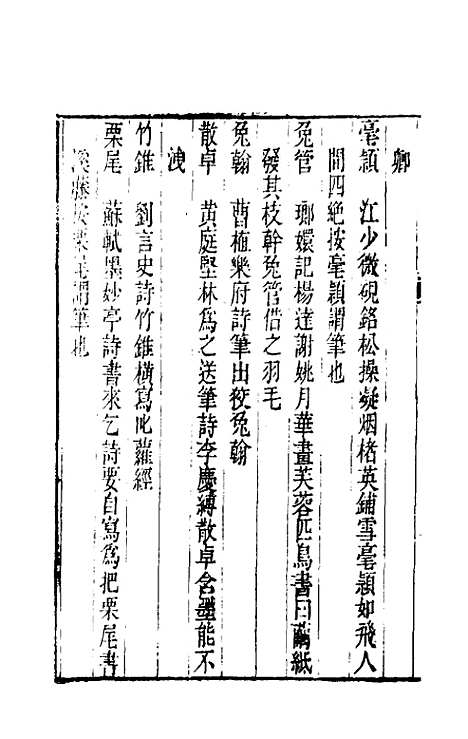 卿
毫頴　江少微硯銘松操凝烟楮英鋪雪毫頴如飛人
間四絶按毫頴謂筆也
兔管　瑯嬛記楊達謝姚月華畫芙蓉匹鳥書曰繭紙
發其枝幹兔管借之羽毛
兔翰　曹植樂府詩筆出狡兔翰
散卓　黄庭堅林爲之送筆詩李慶縛散卓含墨能不
洩
竹錐　劉言史詩竹錐横寫叱蘿經
栗尾　蘇軾墨妙亭詩書來乞詩要自寫爲把栗尾書
溪藤按栗尾謂筆也